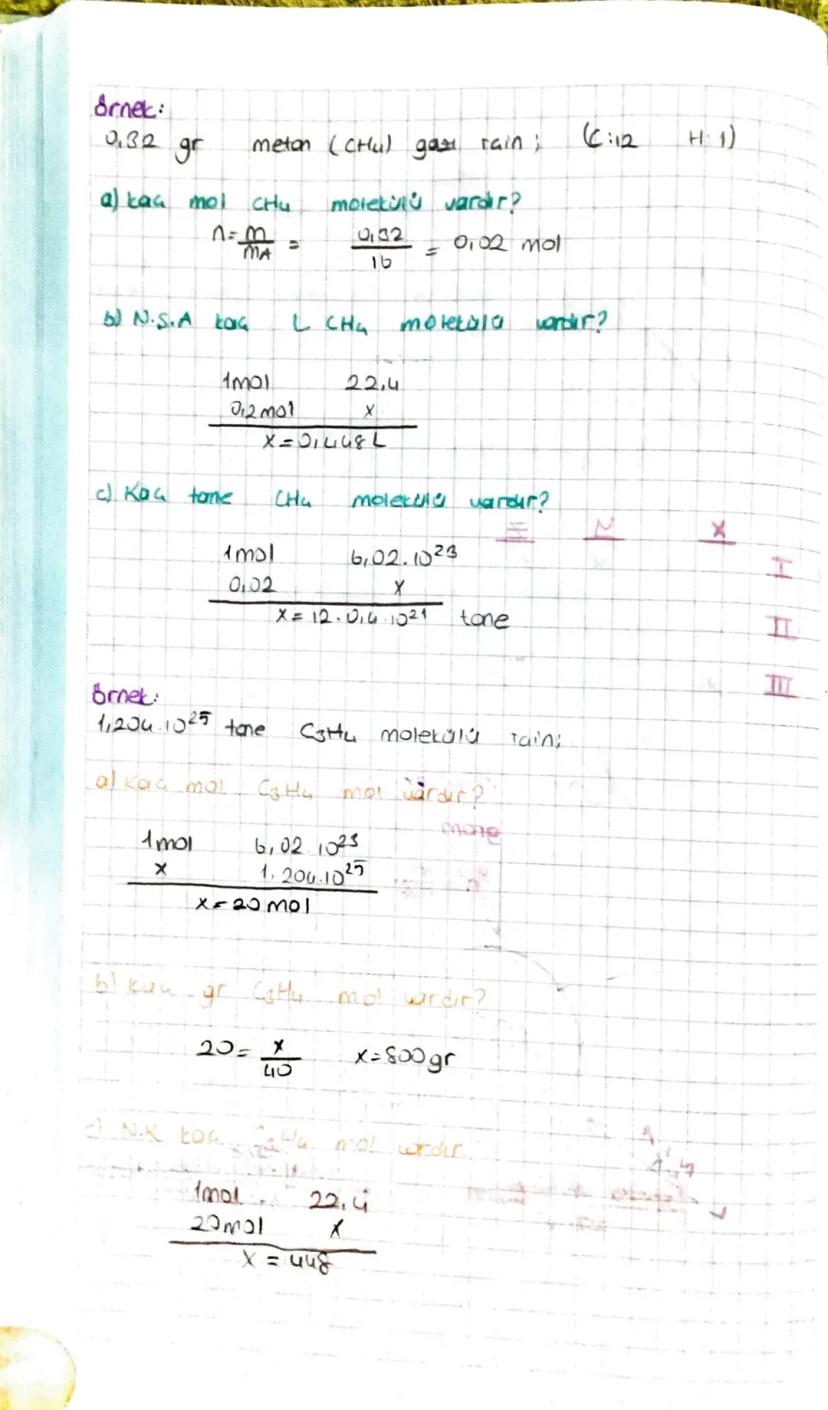 örnek:
0,32 gr metan (CH4) gazı için; (C:12 H:1)
a) kaç mol CH4 molekülü vardır?
n = m/MA = 0,32/16 = 0,02 mol
b) N.Ş.A kaç L CH4 molekülü vardır?
1mol 22,4
0,2mol x
x = 0,448 L
c) Kaç tane CH4 molekülü vardır?
1mol 6,02.10²³
0,02 x
x = 12.0,4.10²¹ tane
X
I
II
III
örnek:
1,204.10²⁵ tane C3H4 molekülü için;
a) kaç mol C3H4 mol vardır?
1mol 6,02.10²³
x 1,204.10²⁵
x = 20 mol
b) kaç gr C3H4 mol vardır?
20 = x/40 x = 800 gr
c) N.K kaç C3H4 mol vardır
1mol 22,4
20mol x
x = 448